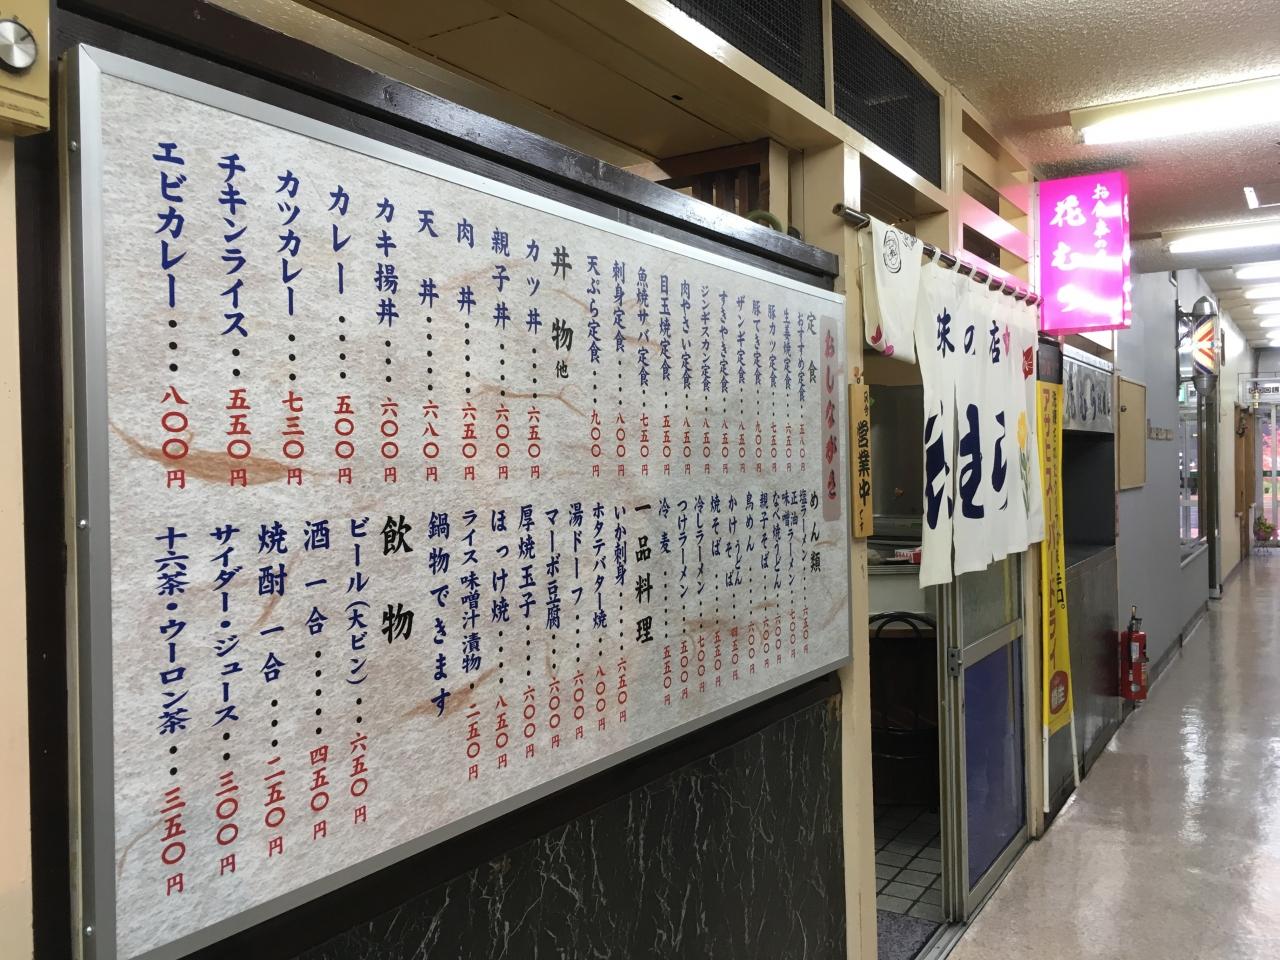 おしながき
定食
おすすめ定食・・・五八〇円
生姜焼定食・・・六五〇円
豚カツ定食・・・七五〇円
豚てき定食・・・九〇〇円
ザンギ定食・・・八五〇円
すきやき定食・・・八五〇円
ジンギスカン定食・・・八五〇円
肉やさい定食・・・八五〇円
目玉焼定食・・・五五〇円
魚焼サバ定食・・・七五〇円
刺身定食・・・八〇〇円
天ぷら定食・・・九〇〇円
丼物他
カツ丼・・・・六五〇円
親子丼・・・・六〇〇円
肉丼・・・・六五〇円
天丼・・・・六八〇円
カキ揚丼・・・・六〇〇円
カレー・・・・五〇〇円
カツカレー・・・・七三〇円
チキンライス・・五五〇円
エビカレー・・・・八〇〇円
めん類
塩ラーメン・・・六五〇円
正油ラーメン
味噌ラーメン・・・七〇〇円
なべ焼うどん・・・六〇〇円
親子そば・・・六〇〇円
鳥めん・・・六〇〇円
かけうどん
そば・・・四五〇円
焼そば・・・五五〇円
冷しラーメン・・・七〇〇円
つけラーメン・・・五〇〇円
冷麦・・・五五〇円
一品料理
いか刺身・・・・六五〇円
ホタテバター焼・・八〇〇円
湯ドーフ・・・・六〇〇円
マーボ豆腐・・・六〇〇円
厚焼玉子・・・・六〇〇円
ほっけ焼・・・・八五〇円
ライス味噌汁漬物・二五〇円
鍋物できます
飲物
ビール(大ビン)・・六五〇円
酒一合・・・・・四五〇円
焼酎一合・・・・二五〇円
サイダー・ジュース・・三〇〇円
十六茶・ウーロン茶・・・三五〇円
営業中です
味の店
お食事の
花むら
アサヒスーパードライ